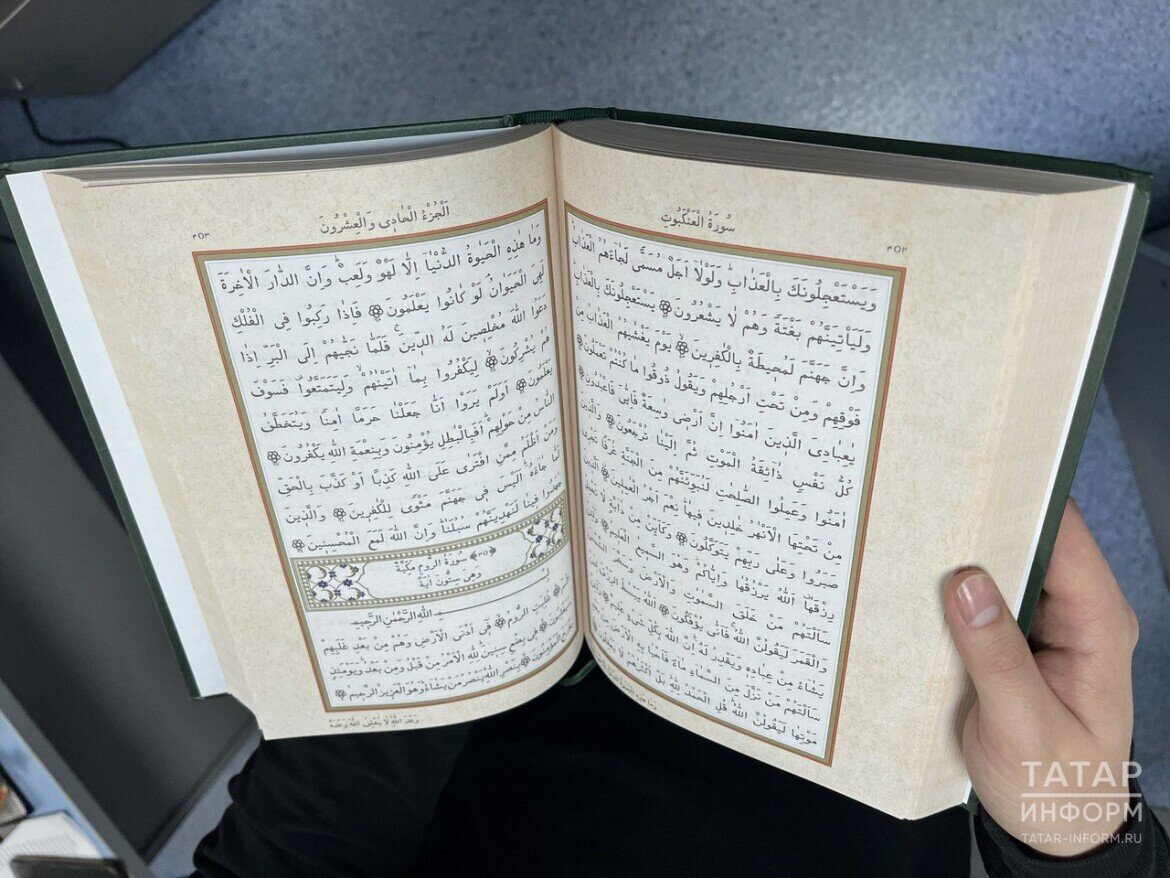 سُورَةُ الْعَنْكَبُوتِ
٤٥٢
وَيَسْتَعْجِلُونَكَ بِالْعَذَابِ وَلَوْلَٓا اَجَلٌ مُسَمًّى لَجَٓاءَهُمُ الْعَذَابُ
وَلَيَاْتِيَنَّهُمْ بَغْتَةً وَهُمْ لَا يَشْعُرُونَ ۞ يَسْتَعْجِلُونَكَ بِالْعَذَابِ
وَاِنَّ جَهَنَّمَ لَمُحِيطَةٌ بِالْكٰفِرِينَ ۞ يَوْمَ يَغْشٰيهُمُ الْعَذَابُ مِنْ
فَوْقِهِمْ وَمِنْ تَحْتِ اَرْجُلِهِمْ وَيَقُولُ ذُوقُوا مَا كُنْتُمْ تَعْمَلُونَ ۞
يٰعِبَادِىَ الَّذِينَ اٰمَنُوٓا اِنَّ اَرْضِى وٰسِعَةٌ فَاِيّٰىَ فَاعْبُدُونِ ۞
كُلُّ نَفْسٍ ذَٓائِقَةُ الْمَوْتِ ثُمَّ اِلَيْنَا تُرْجَعُونَ ۞ وَالَّذِينَ
اٰمَنُوا وَعَمِلُوا الصّٰلِحٰتِ لَنُبَوِّئَنَّهُمْ مِنَ الْجَنَّةِ غُرَفًا تَجْرِى
مِنْ تَحْتِهَا الْاَنْهٰرُ خٰلِدِينَ فِيهَا نِعْمَ اَجْرُ الْعٰمِلِينَ ۞ الَّذِينَ
صَبَرُوا وَعَلٰى رَبِّهِمْ يَتَوَكَّلُونَ ۞ وَكَاَيِّنْ مِنْ دَٓابَّةٍ لَا تَحْمِلُ
رِزْقَهَا اَللّٰهُ يَرْزُقُهَا وَاِيَّاكُمْ وَهُوَ السَّمِيعُ الْعَلِيمُ ۞ وَلَئِنْ
سَاَلْتَهُمْ مَنْ خَلَقَ السَّمٰوٰتِ وَالْاَرْضَ وَسَخَّرَ الشَّمْسَ
وَالْقَمَرَ لَيَقُولُنَّ اللّٰهُ فَاَنّٰى يُؤْفَكُونَ ۞ اَللّٰهُ يَبْسُطُ الرِّزْقَ لِمَنْ
يَشَٓاءُ مِنْ عِبَادِهٖ وَيَقْدِرُ لَهُ اِنَّ اللّٰهَ بِكُلِّ شَىْءٍ عَلِيمٌ ۞ وَلَئِنْ
سَاَلْتَهُمْ مَنْ نَزَّلَ مِنَ السَّمَٓاءِ مَٓاءً فَاَحْيَا بِهِ الْاَرْضَ مِنْ بَعْدِ
مَوْتِهَا لَيَقُولُنَّ اللّٰهُ قُلِ الْحَمْدُ لِلّٰهِ بَلْ اَكْثَرُهُمْ لَا يَعْقِلُونَ ۞
وَمَا هٰذِهِ الْحَيٰوةُ
اَلْجُزْءُ الْحَادِى وَالْعِشْرُونَ
٤٥٣
وَمَا هٰذِهِ الْحَيَاوةُ الدُّنْيَٓا اِلَّا لَهْوٌ وَلَعِبٌ وَاِنَّ الدَّارَ الْاٰخِرَةَ
لَهِىَ الْحَيَوانُ لَوْ كَانُوا يَعْلَمُونَ ۞ فَاِذَا رَكِبُوا فِى الْفُلْكِ
دَعَوُا اللّٰهَ مُخْلِصِينَ لَهُ الدِّينَ فَلَمَّا نَجّٰيهُمْ اِلَى الْبَرِّ اِذَا
هُمْ يُشْرِكُونَ ۞ لِيَكْفُرُوا بِمَٓا اٰتَيْنٰهُمْ وَلِيَتَمَتَّعُوا فَسَوْفَ
يَعْلَمُونَ ۞ اَوَلَمْ يَرَوْا اَنَّا جَعَلْنَا حَرَمًا اٰمِنًا وَيُتَخَطَّفُ
النَّاسُ مِنْ حَوْلِهِمْ اَفَبِالْبٰطِلِ يُؤْمِنُونَ وَبِنِعْمَةِ اللّٰهِ يَكْفُرُونَ ۞
وَمَنْ اَظْلَمُ مِمَّنِ افْتَرٰى عَلَى اللّٰهِ كَذِبًا اَوْ كَذَّبَ بِالْحَقِّ
لَمَّا جَٓاءَهُ اَلَيْسَ فِى جَهَنَّمَ مَثْوًى لِلْكٰفِرِينَ ۞ وَالَّذِينَ
جٰهَدُوا فِينَا لَنَهْدِيَنَّهُمْ سُبُلَنَا وَاِنَّ اللّٰهَ لَمَعَ الْمُحْسِنِينَ ۞
سُورَةُ الرُّومِ مَكِّيَّةٌ
وَهِىَ سِتُّونَ اٰيَةً
بِسْمِ اللّٰهِ الرَّحْمٰنِ الرَّحِيمِ
الٓمٓ ۞ غُلِبَتِ الرُّومُ ۞ فِى اَدْنَى الْاَرْضِ وَهُمْ مِنْ بَعْدِ غَلَبِهِمْ
سَيَغْلِبُونَ ۞ فِى بِضْعِ سِنِينَ لِلّٰهِ الْاَمْرُ مِنْ قَبْلُ وَمِنْ بَعْدُ وَيَوْمَئِذٍ
يَفْرَحُ الْمُؤْمِنُونَ ۞ بِنَصْرِ اللّٰهِ يَنْصُرُ مَنْ يَشَٓاءُ وَهُوَ الْعَزِيزُ الرَّحِيمُ ۞
وَعْدَ اللّٰهِ لَا يُخْلِفُ اللّٰهُ وَعْدَهُ
ТАТАР
ИНФОРМ
TATAR-INFORM.RU